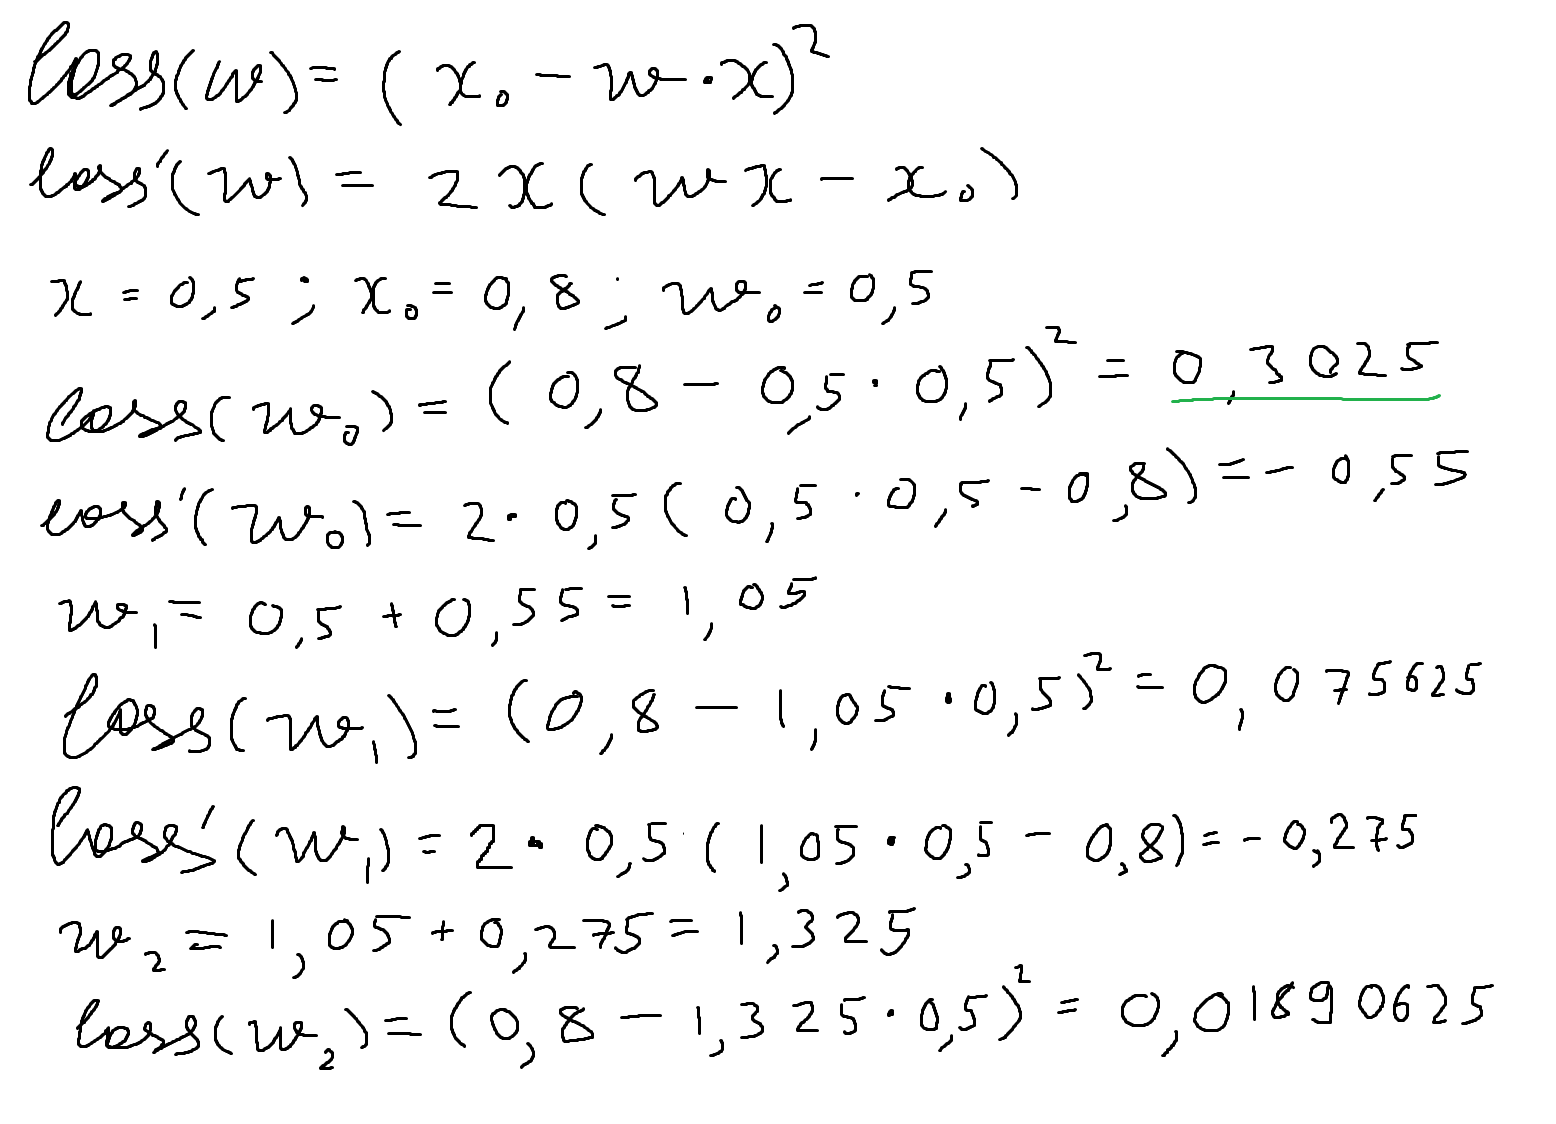 loss(w) = (x₀ - w·x)²
loss'(w) = 2x(wx - x₀)
x = 0,5 ; x₀ = 0,8 ; w₀ = 0,5
loss(w₀) = (0,8 - 0,5·0,5)² = 0,3025
loss'(w₀) = 2·0,5(0,5·0,5 - 0,8) = -0,55
w₁ = 0,5 + 0,55 = 1,05
loss(w₁) = (0,8 - 1,05·0,5)² = 0,075625
loss'(w₁) = 2·0,5(1,05·0,5 - 0,8) = -0,275
w₂ = 1,05 + 0,275 = 1,325
loss(w₂) = (0,8 - 1,325·0,5)² = 0,01890625